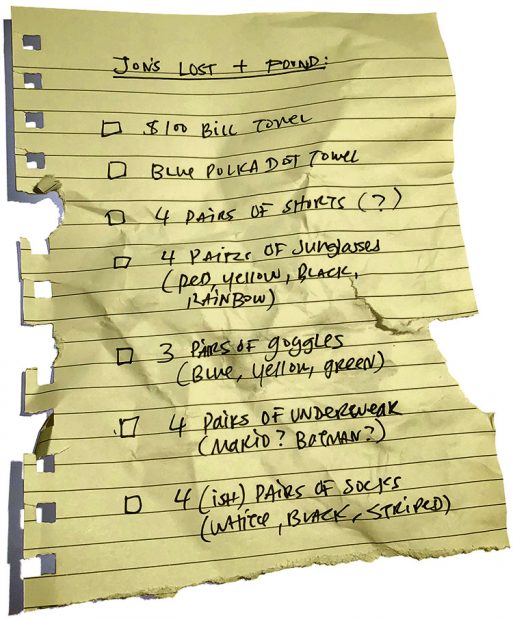 JON'S LOST + FOUND:
$100 BILL TOWEL
BLUE POLKA DOT TOWEL
4 PAIRS OF SHORTS (?)
4 PAIRS OF SUNGLASSES
(RED, YELLOW, BLACK,
RAINBOW)
3 PAIRS OF GOGGLES
(BLUE, YELLOW, GREEN)
4 PAIRS OF UNDERWEAR
(MARIO? BATMAN?)
4 (ISH) PAIRS OF SOCKS
(WHITE, BLACK, STRIPED)